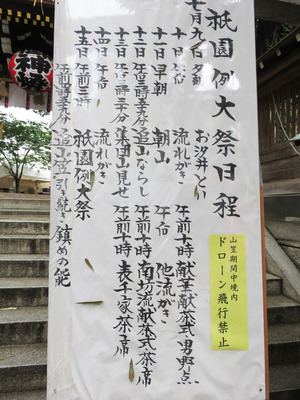 祇園例大祭日程
七月九日 夕刻 お汐井とり
十日 午后 流れがき 午前十時 献華献茶式 男野点
十一日 早朝 朝山 午后 他流がき
十二日 午后三時四十九分 追山ならし 午前十時 南坊流献茶式・茶席
十三日 午后三時三十分 集団山見せ 午前十時 表千家茶席
十四日 午后 流れがき
十五日 午前三時 祇園例大祭
午前四時五十九分 追山笠 引き続き 鎮めの能
山笠期間中境内
ドローン飛行禁止